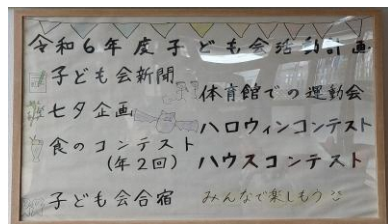 令和6年度子ども会活動計画
子ども会新聞
七夕企画
食のコンテスト
(年2回)
子ども会合宿
体育館での運動会
ハロウィンコンテスト
ハウスコンテスト
みんなで楽しもう